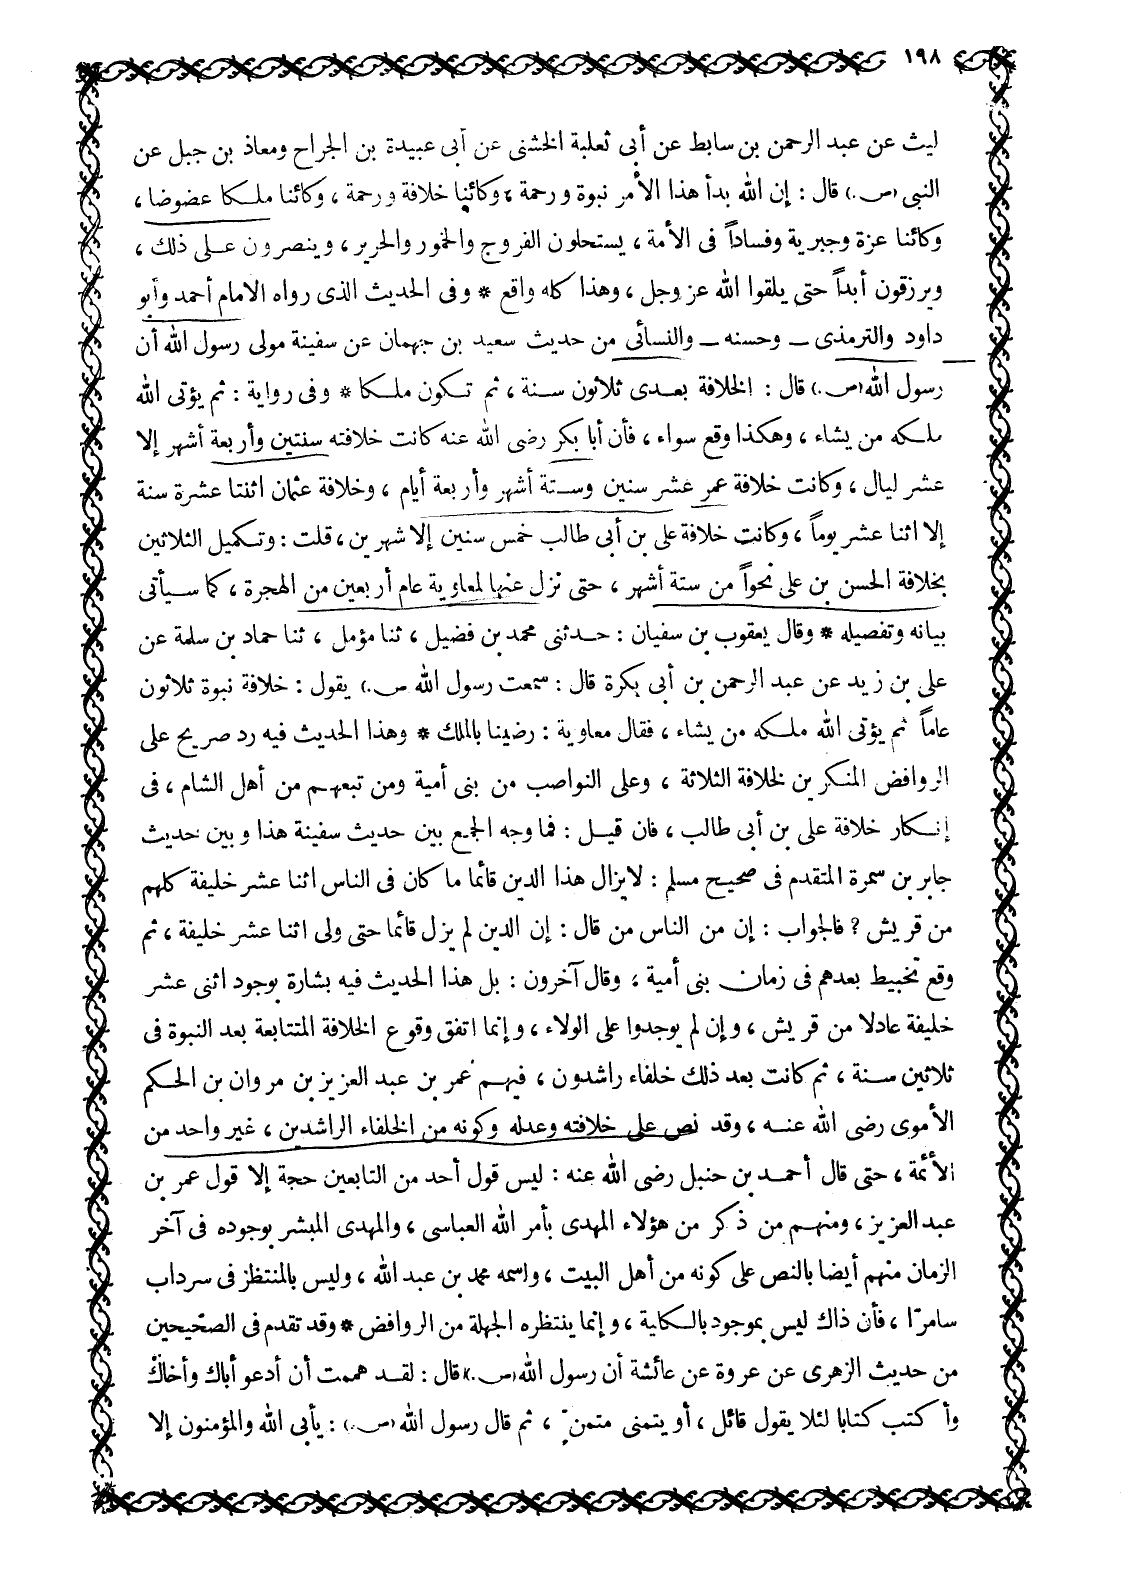 ١٩٨
ليث عن عبد الرحمن بن سابط عن أبى ثعلبة الخشنى عن أبى عبيدة بن الجراح ومعاذ بن جبل عن
النبى (ص.) قال : إن الله بدأ هذا الأمر نبوة ورحمة ، وكائنا خلافة ورحمة ، وكائنا ملكا عضوضا ،
وكائنا عزة وجبرية وفساداً فى الأمة ، يستحلون الفروج والخمور والحرير ، وينصرون على ذلك ،
ويرزقون أبداً حتى يلقوا الله عز وجل ، وهذا كله واقع * وفى الحديث الذى رواه الامام أحمد وأبو
داود والترمذى ــ وحسنه ــ والنسائى من حديث سعيد بن جهمان عن سفينة مولى رسول الله أن
رسول الله (ص.) قال : الخلافة بعدى ثلاثون سنة ، ثم تكون ملكا * وفى رواية : ثم يؤتى الله
ملكه من يشاء ، وهكذا وقع سواء ، فأن أبا بكر رضى الله عنه كانت خلافته سنتين وأربعة أشهر إلا
عشر ليال ، وكانت خلافة عمر عشر سنين وستة أشهر وأربعة أيام ، وخلافة عثمان اثنتا عشرة سنة
إلا اثنا عشر يوماً ، وكانت خلافة على بن أبى طالب خمس سنين إلا شهرين ، قلت : وتكميل الثلاثين
بخلافة الحسن بن على نحواً من ستة أشهر ، حتى نزل عنها لمعاوية عام أربعين من الهجرة ، كما سيأتى
بيانه وتفصيله * وقال يعقوب بن سفيان : حدثنى محمد بن فضيل ، ثنا مؤمل ، ثنا حماد بن سلمة عن
على بن زيد عن عبد الرحمن بن أبى بكرة قال : سمعت رسول الله (ص.) يقول : خلافة نبوة ثلاثون
عاماً ثم يؤتى الله ملكه من يشاء ، فقال معاوية : رضينا بالملك * وهذا الحديث فيه رد صريح على
الروافض المنكرين لخلافة الثلاثة ، وعلى النواصب من بنى أمية ومن تبعهم من أهل الشام ، فى
إنكار خلافة على بن أبى طالب ، فان قيل : فما وجه الجمع بين حديث سفينة هذا وبين حديث
جابر بن سمرة المتقدم فى صحيح مسلم : لا يزال هذا الدين قائما ما كان فى الناس اثنا عشر خليفة كلهم
من قريش ؟ فالجواب : إن من الناس من قال : إن الدين لم يزل قائما حتى ولى اثنا عشر خليفة ، ثم
وقع تخبيط بعدهم فى زمان بنى أمية ، وقال آخرون : بل هذا الحديث فيه بشارة بوجود اثنى عشر
خليفة عادلا من قريش ، وإن لم يوجدوا على الولاء ، وإنما اتفق وقوع الخلافة المتتابعة بعد النبوة فى
ثلاثين سنة ، ثم كانت بعد ذلك خلفاء راشدون ، فيهم عمر بن عبد العزيز بن مروان بن الحكم
الأموى رضى الله عنه ، وقد نص على خلافته وعدله وكونه من الخلفاء الراشدين ، غير واحد من
الأئمة ، حتى قال أحمد بن حنبل رضى الله عنه : ليس قول أحد من التابعين حجة إلا قول عمر بن
عبد العزيز ، ومنهم من ذكر من هؤلاء المهدى بأمر الله العباسى ، والمهدى المبشر بوجوده فى آخر
الزمان منهم أيضا بالنص على كونه من أهل البيت ، واسمه محمد بن عبد الله ، وليس بالمنتظر فى سرداب
سامرّا ، فأن ذاك ليس بموجود بالكلية ، وإنما ينتظره الجهلة من الروافض * وقد تقدم فى الصحيحين
من حديث الزهرى عن عروة عن عائشة أن رسول الله (ص.) قال : لقد هممت أن أدعو أباك وأخاك
وأكتب كتابا لئلا يقول قائل ، أو يتمنى متمنٍّ ، ثم قال رسول الله (ص.) : يأبى الله والمؤمنون إلا